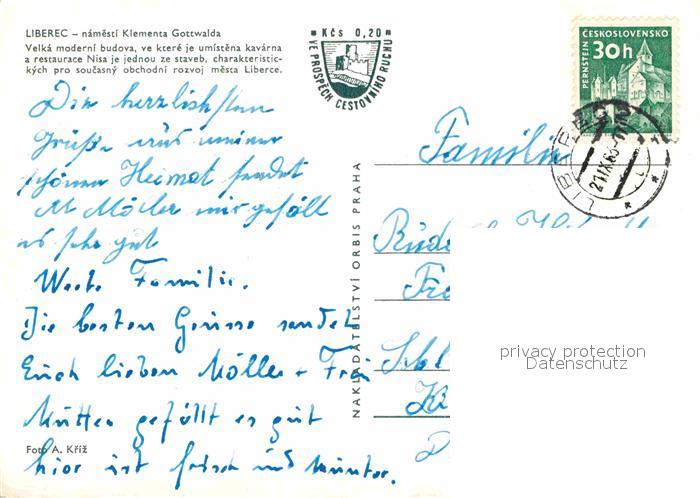 LIBEREC – náměstí Klementa Gottwalda
Velká moderní budova, ve které je umístěna kavárna
a restaurace Nisa je jednou ze staveb, charakteristic-
kých pro současný obchodní rozvoj města Liberce.
Kčs 0,20
VE PROSPĚCH CESTOVNÍHO RUCHU
ČESKOSLOVENSKO
30h
PERNŠTEJN
LIBEREC
21.IX.63
Die herzlichsten
Grüße aus meiner
schönen Heimat sendet
M Möller mir gefällt
es sehr gut
Werte Familie.
Die besten Grüsse sendet
Euch lieben Möller + Frei
Mutter gefällt es gut
hier ist frisch und munter.
Foto A. Kříž
NAKLADATELSTVÍ ORBIS PRAHA
Familie
privacy protection
Datenschutz